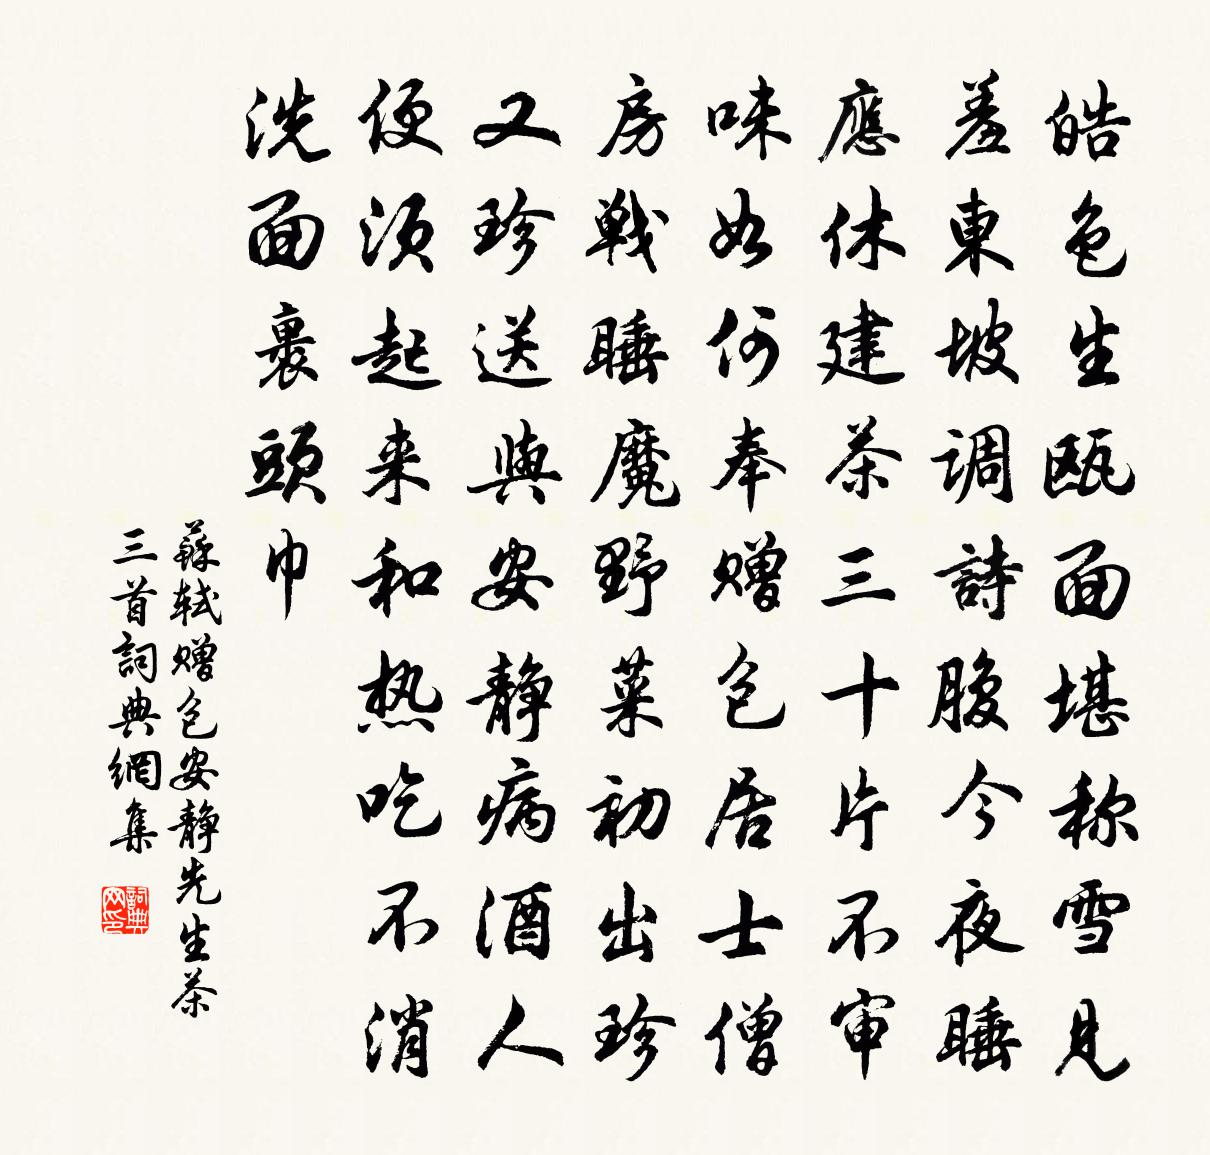 皓色生瓯面堪称雪見
羞東坡調詩腹今夜睡
應休建茶三十片不审
味如何奉赠包居士僧
房戰睡魔野菜初出珍
又珍送與安静病酒人
便须起来和热吃不消
洗面裹頭巾
蘇轼赠包安静先生茶
三首詞典網集
詞典网印